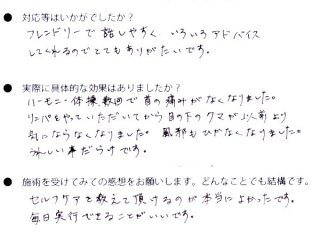 ● 対応等はいかがでしたか？
フレンドリーで話しやすく いろいろアドバイス
してくれるのでとてもありがたいです。
● 実際に具体的な効果はありましたか？
ハーモニー体操数回で首の痛みがなくなりました。
リンパをやっていただいてから目の下のクマが以前より
気にならなくなりました。風邪もひかなくなりました。
うれしい事だらけです。
● 施術を受けてみての感想をお願いします。どんなことでも結構です。
セルフケアを教えて頂けるのが本当によかったです。
毎日実行できることがいいです。